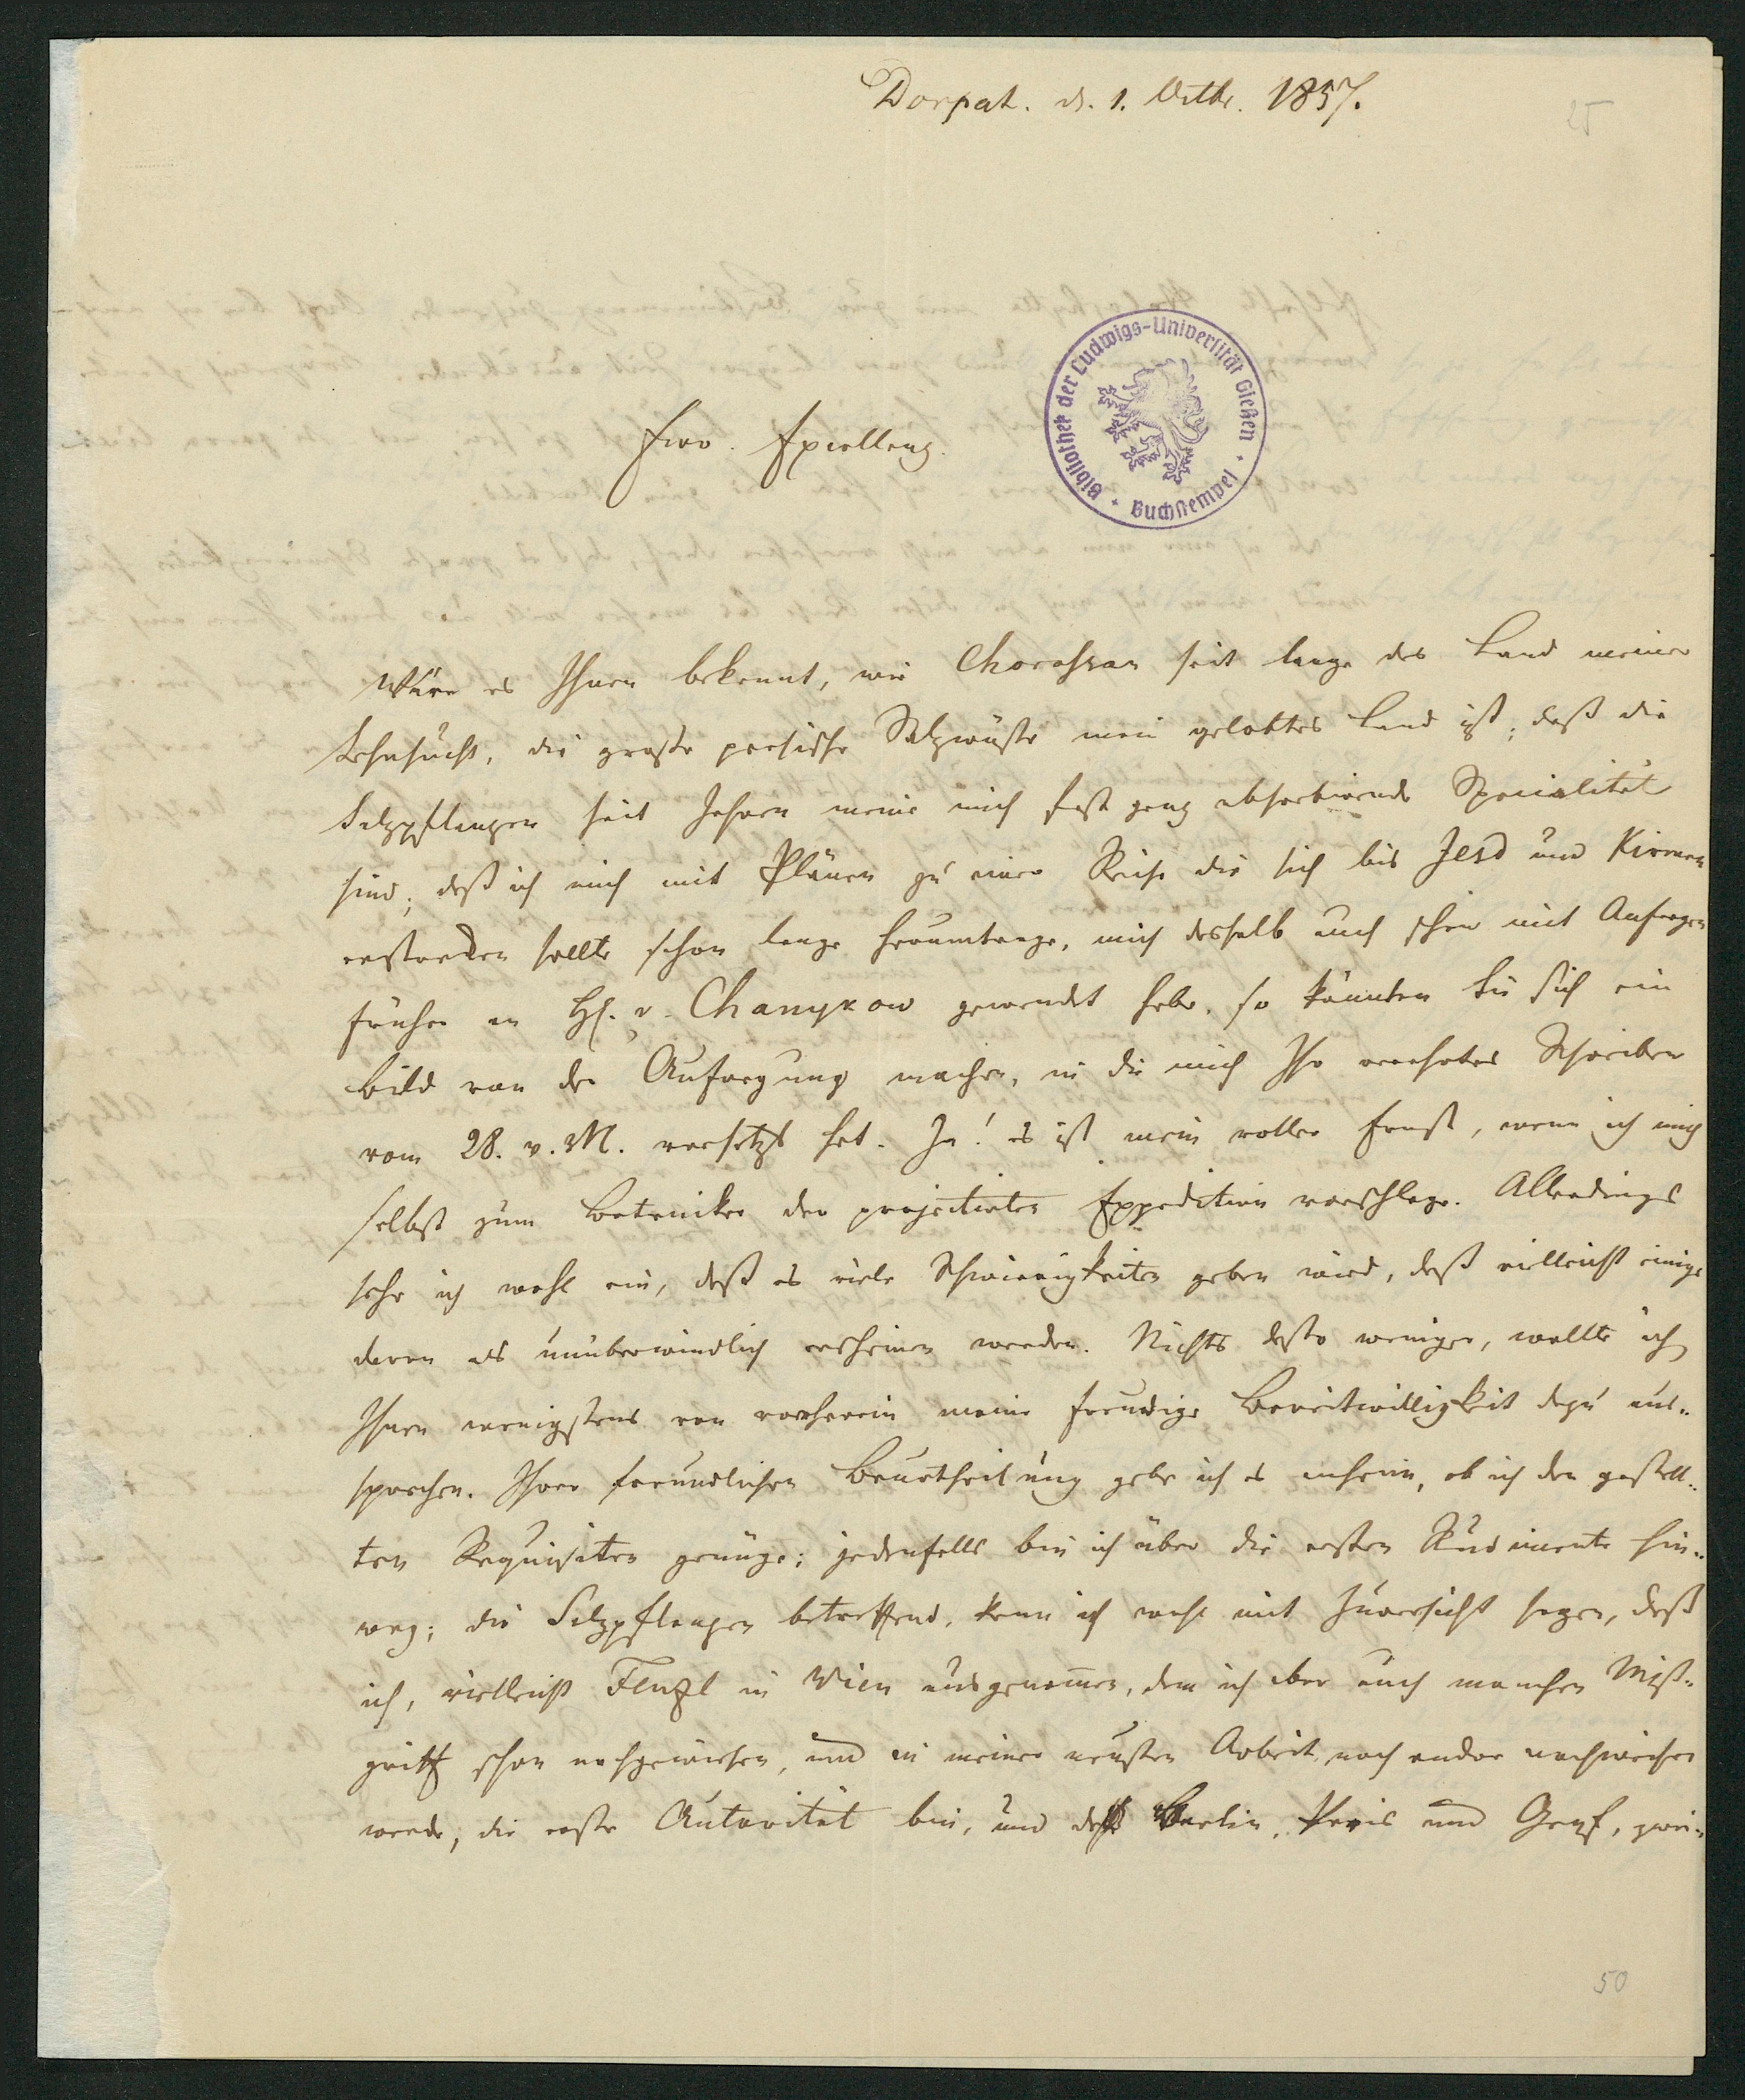 Dorpat. d. 1. Octbr. 1857.
25
Bibliothek der Ludwigs-Universität Gießen · Buchstempel ·
Ew. Excellenz.
Wäre es Ihnen bekannt, wie Chorassan seit lange das Land meiner
Sehnsucht, die große persische Salzwüste mein gelobtes Land ist; daß die
Salzpflanzen seit Jahren meine mich fast ganz absorbirende Specialität
sind; daß ich mich mit Plänen zu einer Reise die sich bis Jesd und Kirman
erstrecken sollte schon lange herumtrage, mich deshalb auch schon mit Anfragen
früher an H. v. Chanykow gewendet habe, so könnten Sie sich ein
Bild von der Aufregung machen, in die mich Ihr verehrtes Schreiben
vom 28. v. M. versetzt hat. Ja! es ist mein voller Ernst, wenn ich mich
selbst zum Botaniker der projectirten Expedition vorschlage. Allerdings
sehe ich wohl ein, daß es viele Schwierigkeiten geben wird, daß vielleicht einige
davon als unüberwindlich erscheinen werden. Nichts desto weniger, wollte ich
Ihnen wenigstens von vorherein meine freudige Bereitwilligkeit dazu aus-
sprechen. Ihrer freundlichen Beurtheilung gebe ich es anheim, ob ich den gestell-
ten Requisiten genüge; jedenfalls bin ich über die ersten Rudimente hin-
weg; die Salzpflanzen betreffend, kann ich wohl mit Zuversicht sagen, daß
ich, vielleicht Fenzl in Wien ausgenommen, dem ich aber auch manchen Miß-
griff schon nachgewiesen, und in meiner neusten Arbeit, noch andre nachweisen
werde, die erste Autorität bin, und daß Berlin, Paris und Genf, zwei-
50